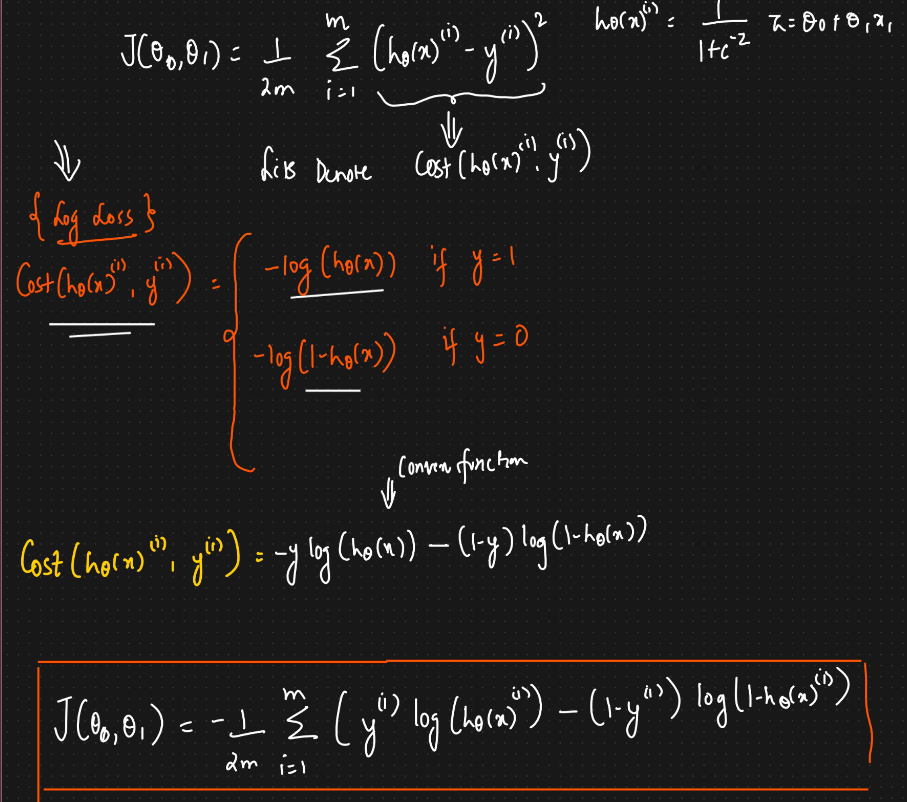 J(θ₀,θ₁) = 1/2m Σᵢ₌₁ᵐ (hθ(x)⁽ⁱ⁾ - y⁽ⁱ⁾)²   hθ(x)⁽ⁱ⁾ = 1/1+e⁻ᶻ   z = θ₀ + θ₁x₁
⇓
⇓ Lets Denote Cost(hθ(x)⁽ⁱ⁾, y⁽ⁱ⁾)
{Log Loss}
Cost(hθ(x)⁽ⁱ⁾, y⁽ⁱ⁾) = { -log(hθ(x)) if y=1
-log(1-hθ(x)) if y=0
⇓ Convex function
Cost(hθ(x)⁽ⁱ⁾, y⁽ⁱ⁾) = -y log(hθ(x)) - (1-y) log(1-hθ(x))
J(θ₀,θ₁) = -1/2m Σᵢ₌₁ᵐ (y⁽ⁱ⁾ log(hθ(x)⁽ⁱ⁾) - (1-y⁽ⁱ⁾) log(1-hθ(x)⁽ⁱ⁾)